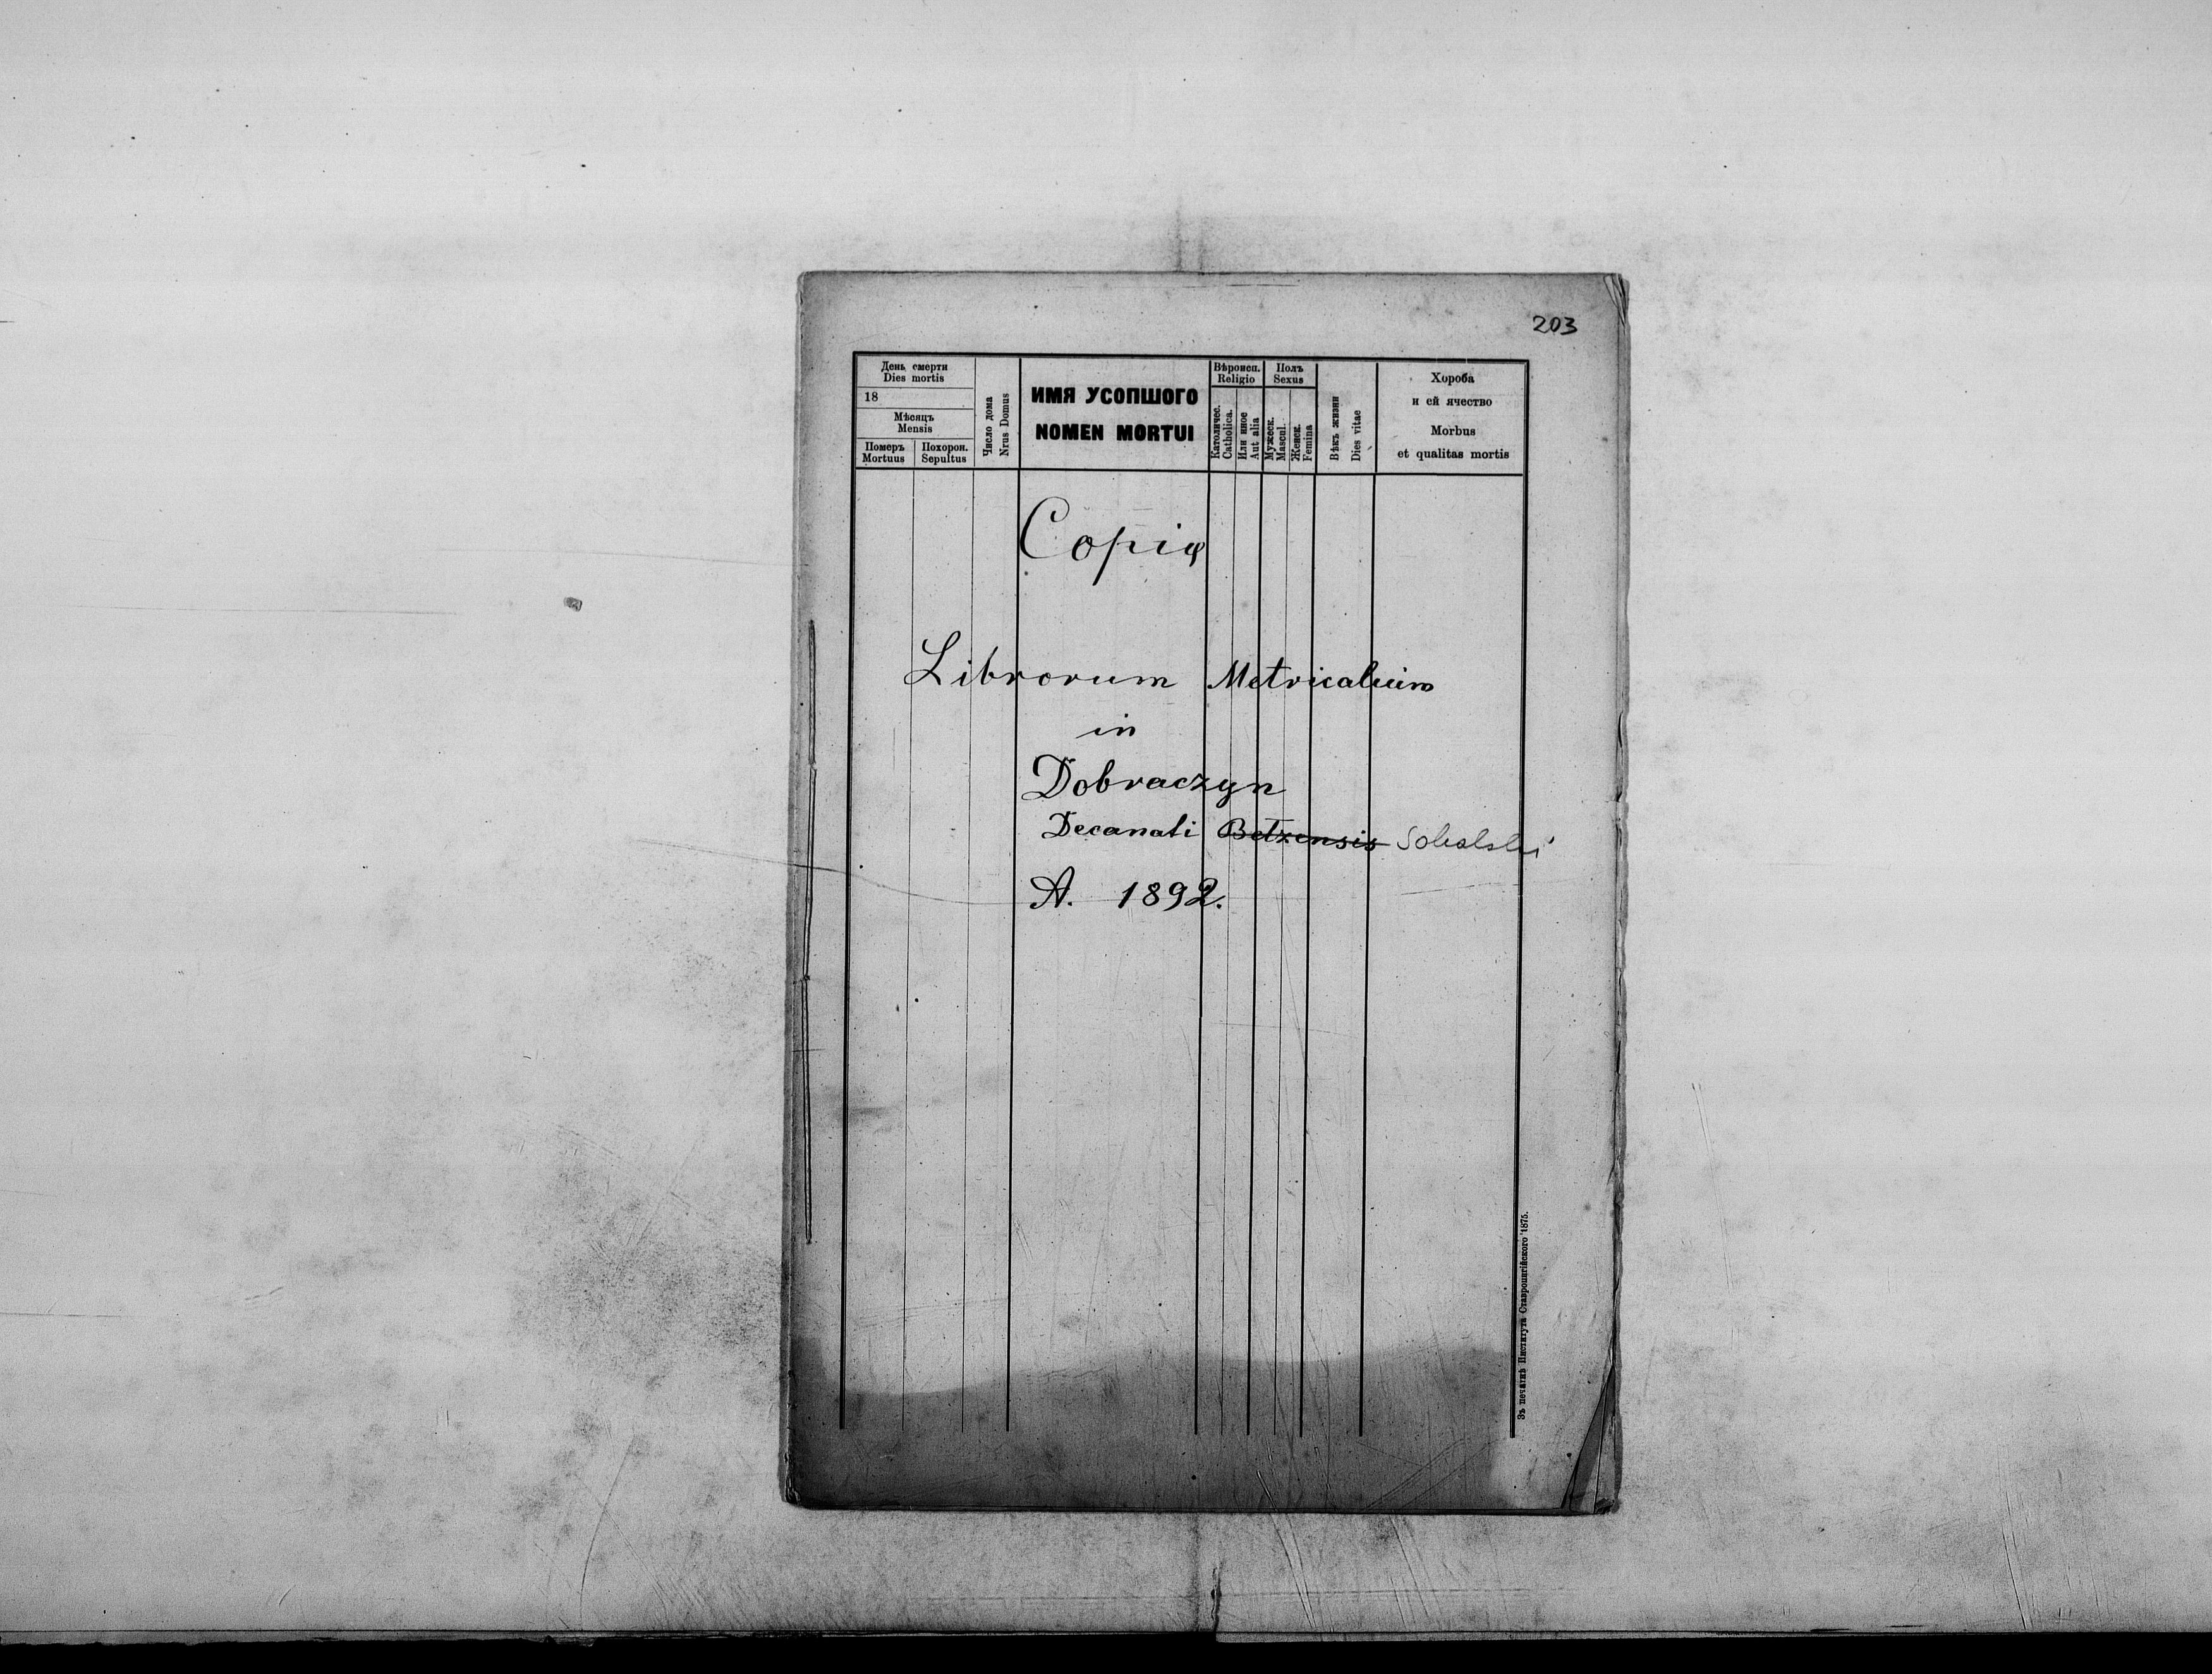 203
День смерти
Dies mortis
18
Мѣсяцъ
Mensis
Померъ
Mortuus
Похорон.
Sepultus
Число дома
Nrus Domus
ИМЯ УСОПШОГО
NOMEN MORTUI
Вѣроисп.
Religio
Католичес.
Catholica.
Или иное
Aut alia
Полъ
Sexus
Мужеск.
Mascul.
Женск.
Femina
Вѣкъ жизни
Dies vitae
Хороба
и ей ячество
Morbus
et qualitas mortis
Copia
Librorum Metricalium
in
Dobraczyn
Decanati Betzensis Sokalski
A. 1892.
Зъ печатнѣ Института Ставропигійского 1875.